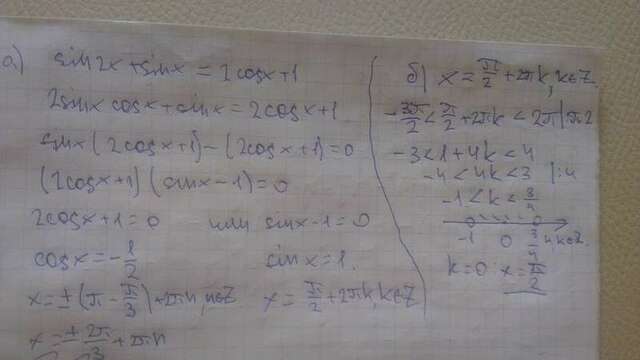 а) sin2x+sinx=2cosx+1
2sinxcosx+sinx=2cosx+1
sinx(2cosx+1)-(2cosx+1)=0
(2cosx+1)(sinx-1)=0
2cosx+1=0 или sinx-1=0
cosx=-1/2 sinx=1.
x=±(π-π/3)+2πn, n∈Z x=π/2+2πk, k∈Z
x=±2π/3+2πn
б) x=π/2+2πk, k∈Z.
-3π/2<π/2+2πk<2π |÷π·2
-3<1+4k<4
-4<4k<3 |:4
-1<k<3/4
-1 0 3/4 k∈Z.
k=0 x=π/2